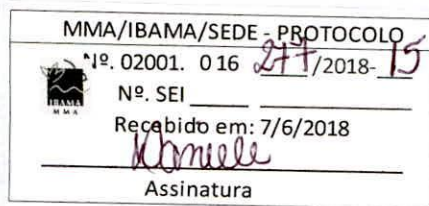 MMA/IBAMA/SEDE - PROTOCOLO
Nº. 02001. 016 277/2018-15
IBAMA
MMA
Nº. SEI
Recebido em: 7/6/2018
Daniele
Assinatura